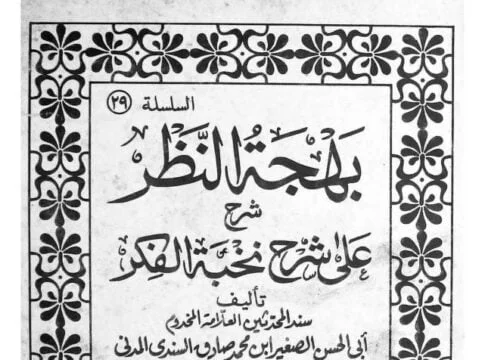 السلسلة ٢٩
بَهجَةُ النَّظَر
شرح
على شرح نخبة الفكر
تأليف
سند المحدثين العلامة المخدوم
أبي الحسن الصغير ابن محمد صادق السندي المدني